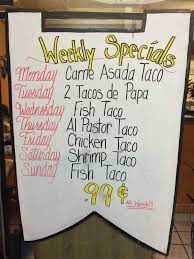 Weekly Specials
Monday Carne Asada Taco
Tuesday 2 Tacos de Papa
Wednesday Fish Taco
Thursday Al Pastor Taco
Friday Chicken Taco
Saturday Shrimp Taco
Sunday Fish Taco
.99¢